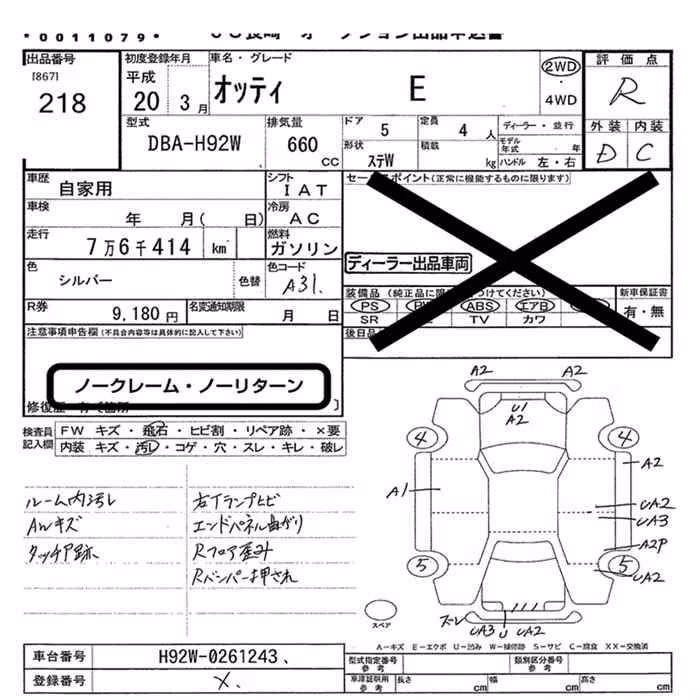 *0011079*
出品番号 [867] 218
初度登録年月 平成 20 3 月
車名・グレード オッティ E
2WD・4WD
評価点 R
外装 内装
D C
型式 DBA-H92W
排気量 660 CC
ドア 5 定員 4 人
ディーラー・並行
形状 ステW 積載 kg
モデル年式 年
ハンドル 左・右
車歴 自家用
シフト IAT
車検 年 月( 日)
冷房 AC
走行 7万6千414 km
燃料 ガソリン
色 シルバー 色替
色コード A31.
R券 9,180 円
名変通知期限 月 日
ポイント(正常に機能するものに限ります)
ディーラー出品車両
装備品 (純正品に つけてください)
PS ABS エアB
SR TV カワ
新車保証書 有・無
後日品
注意事項申告欄(不具合内容等は具体的に記入して下さい)
ノークレーム・ノーリターン
検査員記入欄
FW キズ・飛石・ヒビ割・リペア跡・×要
内装 キズ・汚レ・コゲ・穴・スレ・キレ・破レ
ルーム内汚レ 右Tランプヒビ
AWキズ エンドパネル曲がり
タッチア跡 Rフロア歪み
Rバンパー押され
A2 A2
U1
A2
4 4
A1 A2
UA2
UA3
A2P
5 5
UA2
スレ UA3 U UA2
スペア
A-キズ E-エクボ U-凹み W-補修跡 S-サビ C-腐食 XX-交換済
車台番号 H92W-0261243.
登録番号 X.
型式指定番号 参考
類別区分番号 参考
車庫証明用 参考 長さ cm 幅 cm 高さ cm